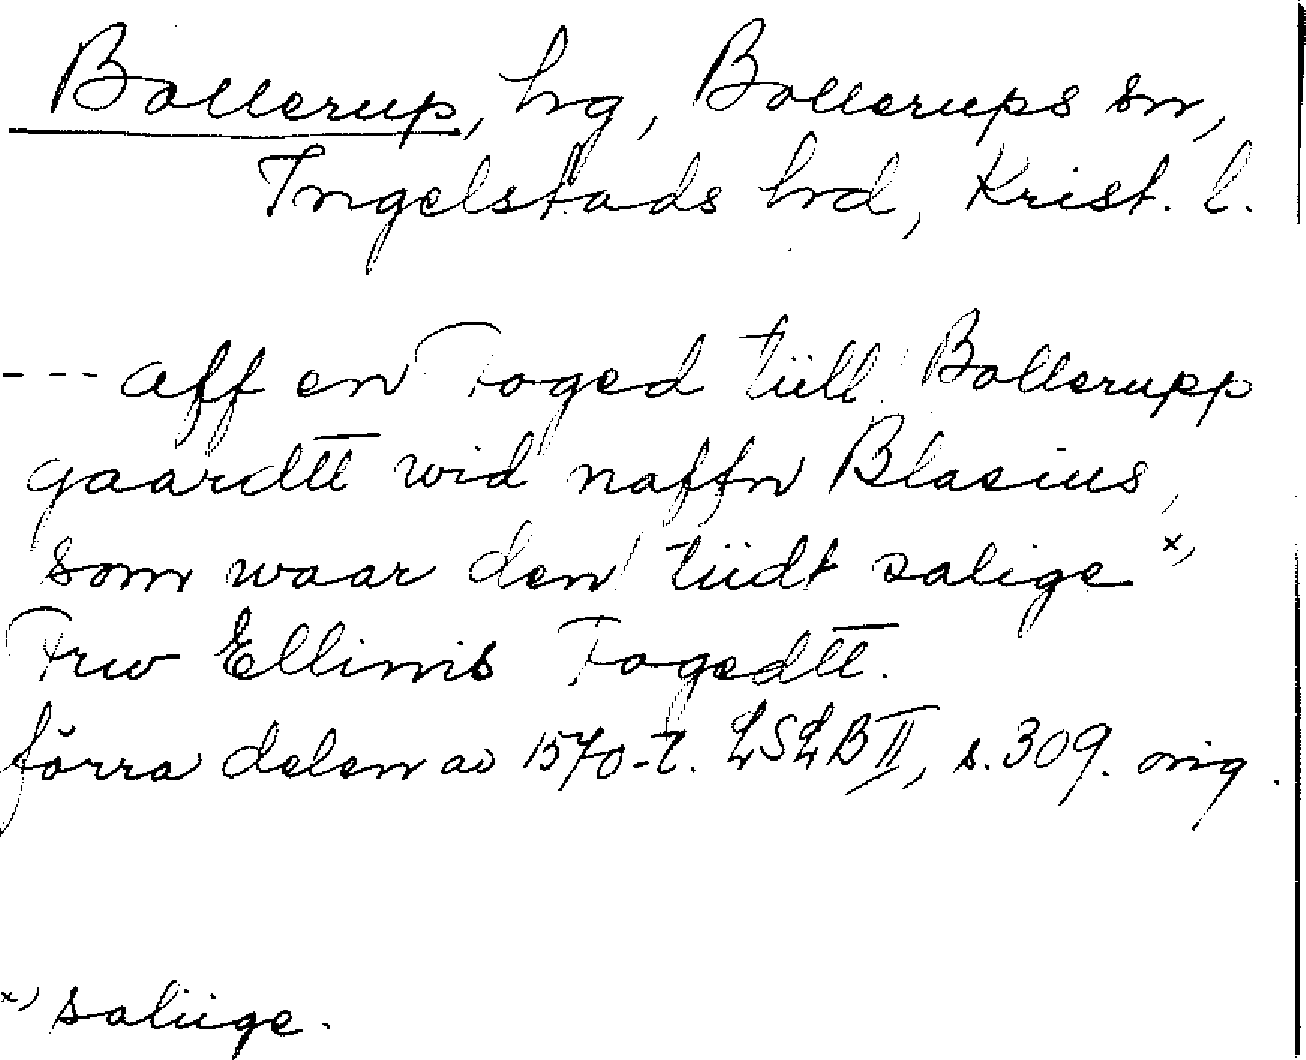 Bollerup, hg, Bollerups sn,
Ingelstads hrd, Krist. l.
--- aff en Foged tiill Bollerupp
gaardtt wid naffn Blasius,
som waar den tiidt salige x)
Frw Ellinis Fogedtt.
förra delen av 1570-t. LSLB II, s. 309. orig.
x) saliige.